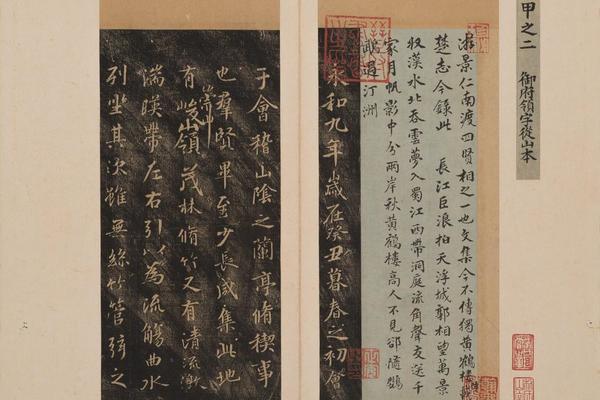 甲之二 御府領字從山本
游景仁南渡四賢相之一也文集今不傳獨黃鶴樓詩載
楚志今錄此 長江巨浪拍天浮城郭相望萬景
収漢水北吞雲夢入蜀江西帶洞庭流角聲交送千
家月帆影中分兩岸秋黃鶴樓高人不見卻隨鸚
鵡過汀洲
永和九年歲在癸丑暮春之初會
于會稽山陰之蘭亭脩稧事
也羣賢畢至少長咸集此地
有崇山峻嶺茂林脩竹又有清流激
湍暎帶左右引以為流觴曲水
列坐其次雖無絲竹管弦之